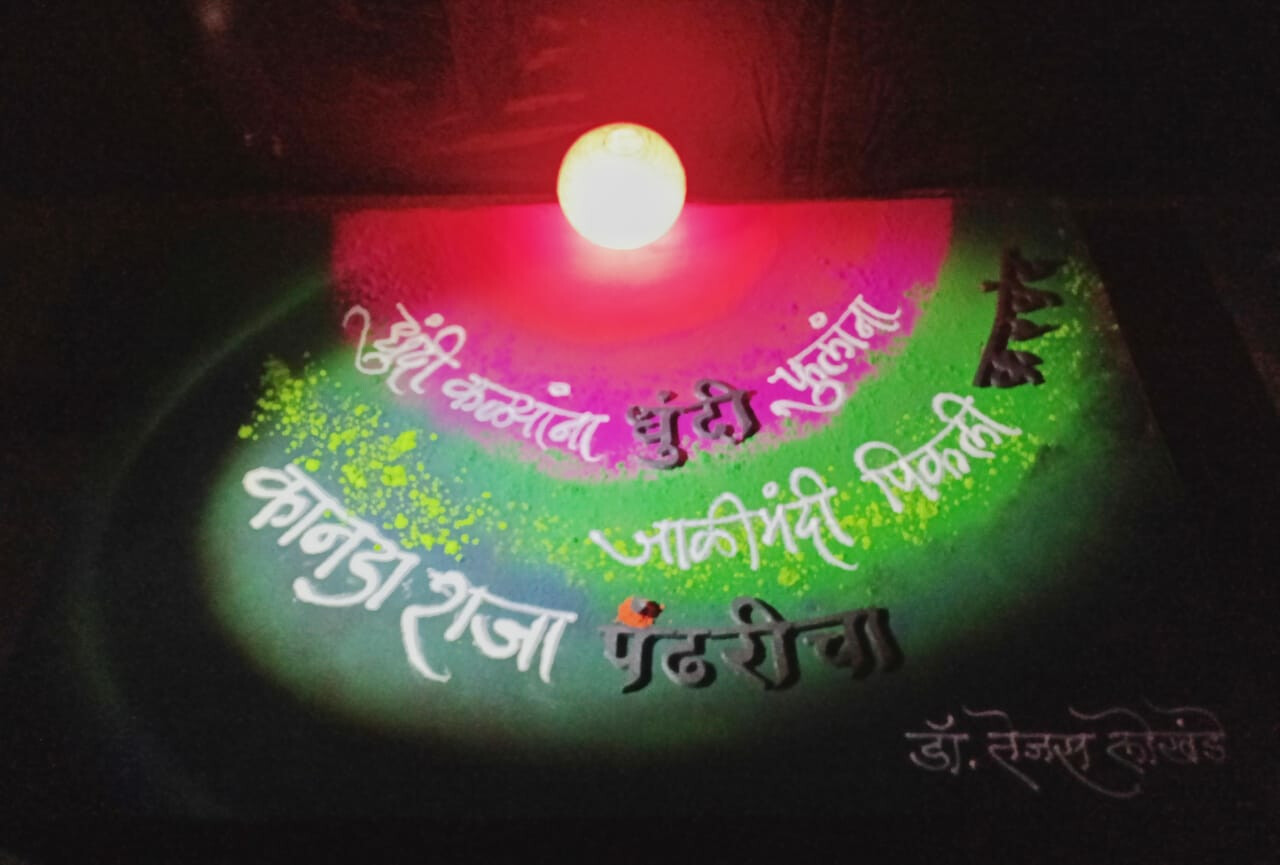 धुंदी कळ्यांना धुंदी फुलांना
जाळीमंदी पिकली करवंदं
कानडा राजा पंढरीचा
डॉ. तेजस लोखंडे